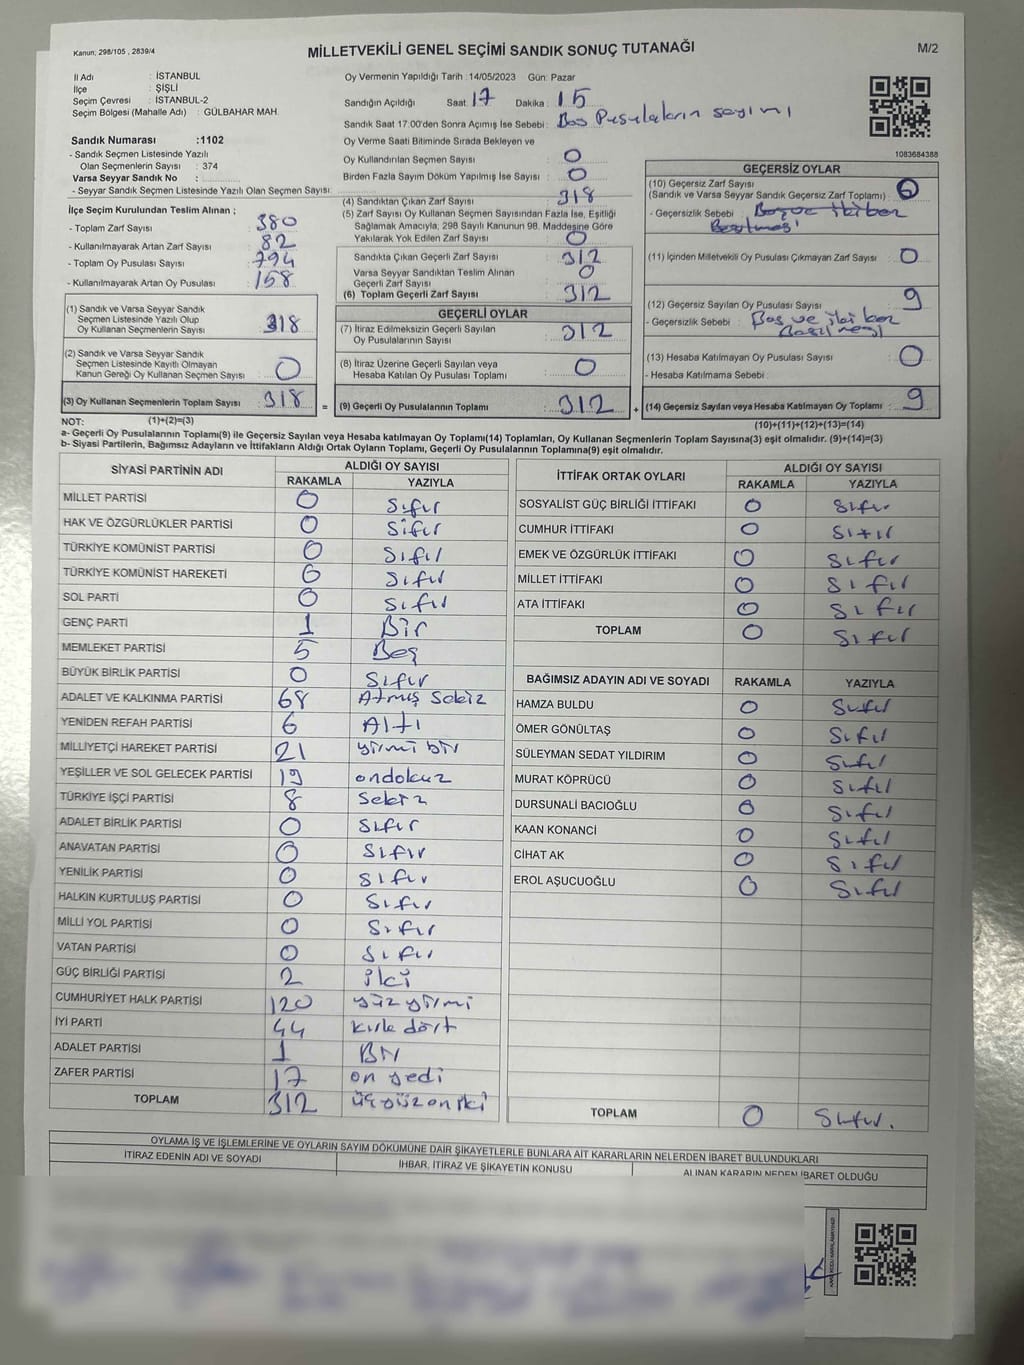 Kanun; 298/105 , 2839/4
MİLLETVEKİLİ GENEL SEÇİMİ SANDIK SONUÇ TUTANAĞI
M/2
İl Adı : İSTANBUL
İlçe : ŞİŞLİ
Seçim Çevresi : İSTANBUL-2
Seçim Bölgesi (Mahalle Adı) : GÜLBAHAR MAH.
Sandık Numarası :1102
- Sandık Seçmen Listesinde Yazılı
Olan Seçmenlerin Sayısı : 374
Varsa Seyyar Sandık No :
- Seyyar Sandık Seçmen Listesinde Yazılı Olan Seçmen Sayısı:
Oy Vermenin Yapıldığı Tarih :14/05/2023 Gün: Pazar
Sandığın Açıldığı Saat: 17 Dakika: 15
Sandık Saat 17.00'den Sonra Açımış İse Sebebi: Boş Pusulaların sayımı
Oy Verme Saati Bitiminde Sırada Bekleyen ve
Oy Kullandırılan Seçmen Sayısı : 0
Birden Fazla Sayım Döküm Yapılmış İse Sayısı : 0
1083684388
İlçe Seçim Kurulundan Teslim Alınan ;
- Toplam Zarf Sayısı : 380
- Kullanılmayarak Artan Zarf Sayısı : 82
- Toplam Oy Pusulası Sayısı : 794
- Kullanılmayarak Artan Oy Pusulası : 158
(1) Sandık ve Varsa Seyyar Sandık
Seçmen Listesinde Yazılı Olup
Oy Kullanan Seçmenlerin Sayısı : 318
(2) Sandık ve Varsa Seyyar Sandık
Seçmen Listesinde Kayıtlı Olmayan
Kanun Gereği Oy Kullanan Seçmen Sayısı : 0
(3) Oy Kullanan Seçmenlerin Toplam Sayısı : 318
(1)+(2)=(3)
(4) Sandıktan Çıkan Zarf Sayısı : 318
(5) Zarf Sayısı Oy Kullanan Seçmen Sayısından Fazla İse, Eşitliği
Sağlamak Amacıyla, 298 Sayılı Kanunun 98. Maddesine Göre
Yakılarak Yok Edilen Zarf Sayısı : 0
Sandıkta Çıkan Geçerli Zarf Sayısı : 312
Varsa Seyyar Sandıktan Teslim Alınan
Geçerli Zarf Sayısı : 0
(6) Toplam Geçerli Zarf Sayısı : 312
GEÇERLİ OYLAR
(7) İtiraz Edilmeksizin Geçerli Sayılan
Oy Pusulalarının Sayısı : 312
(8) İtiraz Üzerine Geçerli Sayılan veya
Hesaba Katılan Oy Pusulası Toplamı : 0
= (9) Geçerli Oy Pusulalarının Toplamı : 312 +
GEÇERSİZ OYLAR
(10) Geçersiz Zarf Sayısı
(Sandık ve Varsa Seyyar Sandık Geçersiz Zarf Toplamı) :
- Geçersizlik Sebebi :
(11) İçinden Milletvekili Oy Pusulası Çıkmayan Zarf Sayısı : 0
(12) Geçersiz Sayılan Oy Pusulası Sayısı : 9
- Geçersizlik Sebebi : Boş ve iki kez
(13) Hesaba Katılmayan Oy Pusulası Sayısı : 0
- Hesaba Katılmama Sebebi :
(14) Geçersiz Sayılan veya Hesaba Katılmayan Oy Toplamı : 9
(10)+(11)+(12)+(13)=(14)
NOT:
a- Geçerli Oy Pusulalarının Toplamı(9) ile Geçersiz Sayılan veya Hesaba katılmayan Oy Toplamı(14) Toplamları, Oy Kullanan Seçmenlerin Toplam Sayısına(3) eşit olmalıdır. (9)+(14)=(3)
b- Siyasi Partilerin, Bağımsız Adayların ve İttifakların Aldığı Ortak Oyların Toplamı, Geçerli Oy Pusulalarının Toplamına(9) eşit olmalıdır.
SİYASİ PARTİNİN ADI ALDIĞI OY SAYISI
RAKAMLA YAZIYLA
MİLLET PARTİSİ 0 Sıfır
HAK VE ÖZGÜRLÜKLER PARTİSİ 0 Sıfır
TÜRKİYE KOMÜNİST PARTİSİ 0 Sıfır
TÜRKİYE KOMÜNİST HAREKETİ 0 Sıfır
SOL PARTİ 0 Sıfır
GENÇ PARTİ 1 Bir
MEMLEKET PARTİSİ 5 Beş
BÜYÜK BİRLİK PARTİSİ 0 Sıfır
ADALET VE KALKINMA PARTİSİ 68 Atmış Sekiz
YENİDEN REFAH PARTİSİ 6 Altı
MİLLİYETÇİ HAREKET PARTİSİ 21 yirmi bir
YEŞİLLER VE SOL GELECEK PARTİSİ 19 ondokuz
TÜRKİYE İŞÇİ PARTİSİ 8 Sekiz
ADALET BİRLİK PARTİSİ 0 Sıfır
ANAVATAN PARTİSİ 0 Sıfır
YENİLİK PARTİSİ 0 Sıfır
HALKIN KURTULUŞ PARTİSİ 0 Sıfır
MİLLİ YOL PARTİSİ 0 Sıfır
VATAN PARTİSİ 0 Sıfır
GÜÇ BİRLİĞİ PARTİSİ 2 iki
CUMHURİYET HALK PARTİSİ 120 yüz yirmi
İYİ PARTİ 44 kırk dört
ADALET PARTİSİ 1 Bir
ZAFER PARTİSİ 17 on yedi
TOPLAM 312 üçyüz on iki
İTTİFAK ORTAK OYLARI ALDIĞI OY SAYISI
RAKAMLA YAZIYLA
SOSYALİST GÜÇ BİRLİĞİ İTTİFAKI 0 Sıfır
CUMHUR İTTİFAKI 0 Sıfır
EMEK VE ÖZGÜRLÜK İTTİFAKI 0 Sıfır
MİLLET İTTİFAKI 0 Sıfır
ATA İTTİFAKI 0 Sıfır
TOPLAM 0 Sıfır
BAĞIMSIZ ADAYIN ADI VE SOYADI RAKAMLA YAZIYLA
HAMZA BULDU 0 Sıfır
ÖMER GÖNÜLTAŞ 0 Sıfır
SÜLEYMAN SEDAT YILDIRIM 0 Sıfır
MURAT KÖPRÜCÜ 0 Sıfır
DURSUNALİ BACIOĞLU 0 Sıfır
KAAN KONANCİ 0 Sıfır
CİHAT AK 0 Sıfır
EROL AŞUCUOĞLU 0 Sıfır
TOPLAM 0 Sıfır.
OYLAMA İŞ VE İŞLEMLERİNE VE OYLARIN SAYIM DÖKÜMÜNE DAİR ŞİKAYETLERLE BUNLARA AİT KARARLARIN NELERDEN İBARET BULUNDUKLARI
İTİRAZ EDENİN ADI VE SOYADI İHBAR, İTİRAZ VE ŞİKAYETİN KONUSU ALINAN KARARIN NEDEN İBARET OLDUĞU